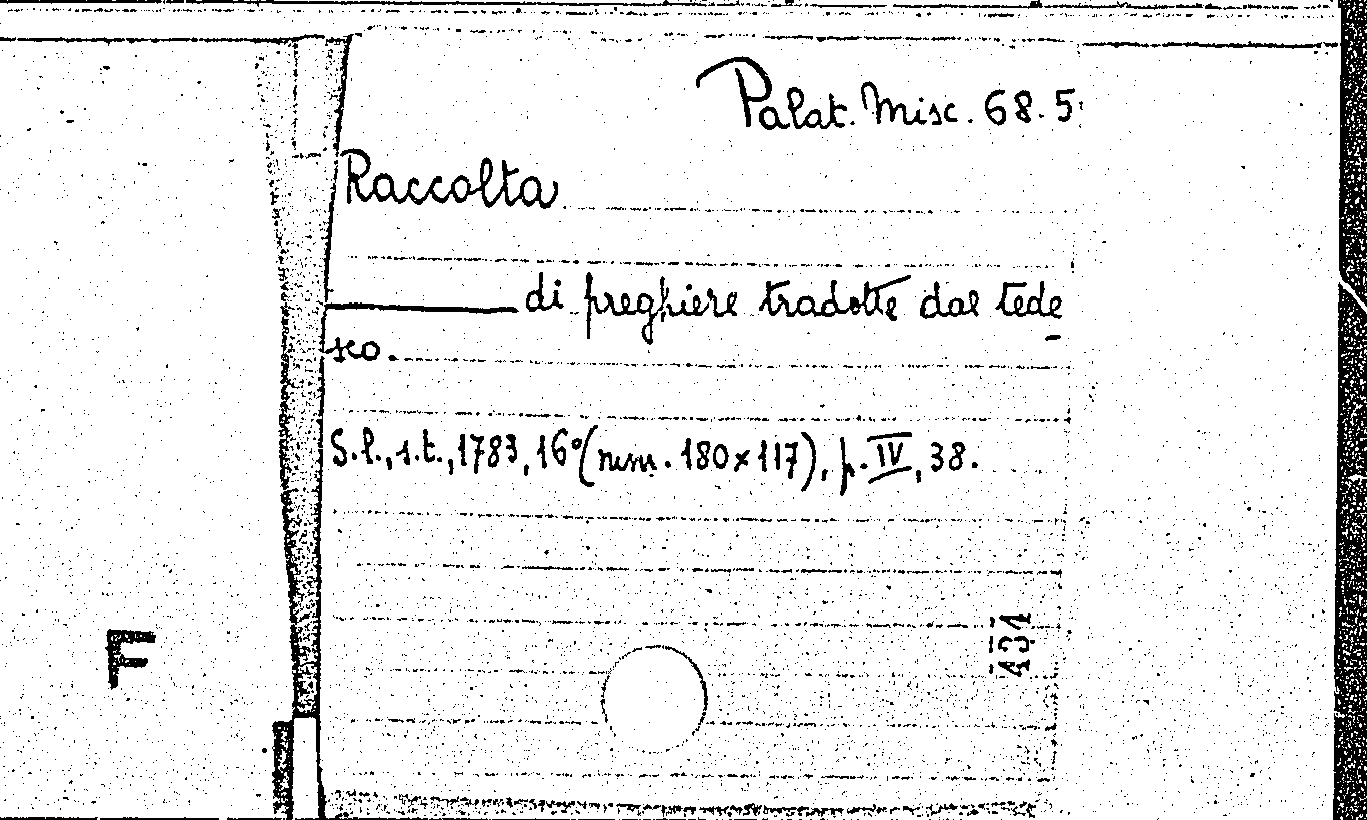 Palat. Misc. 68.5.
Raccolta
di preghiere tradotte dal tede-
sco.
S.l., s.t., 1783, 16° (mm. 180×117), p. IV, 38.
434
F